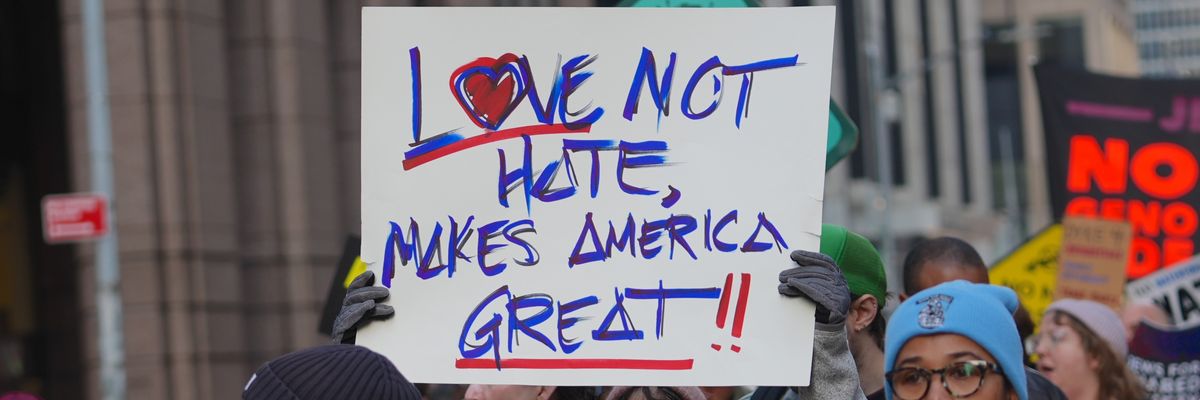 LOVE NOT
HATE,
MAKES AMERICA
GREAT!!
NO
GENO